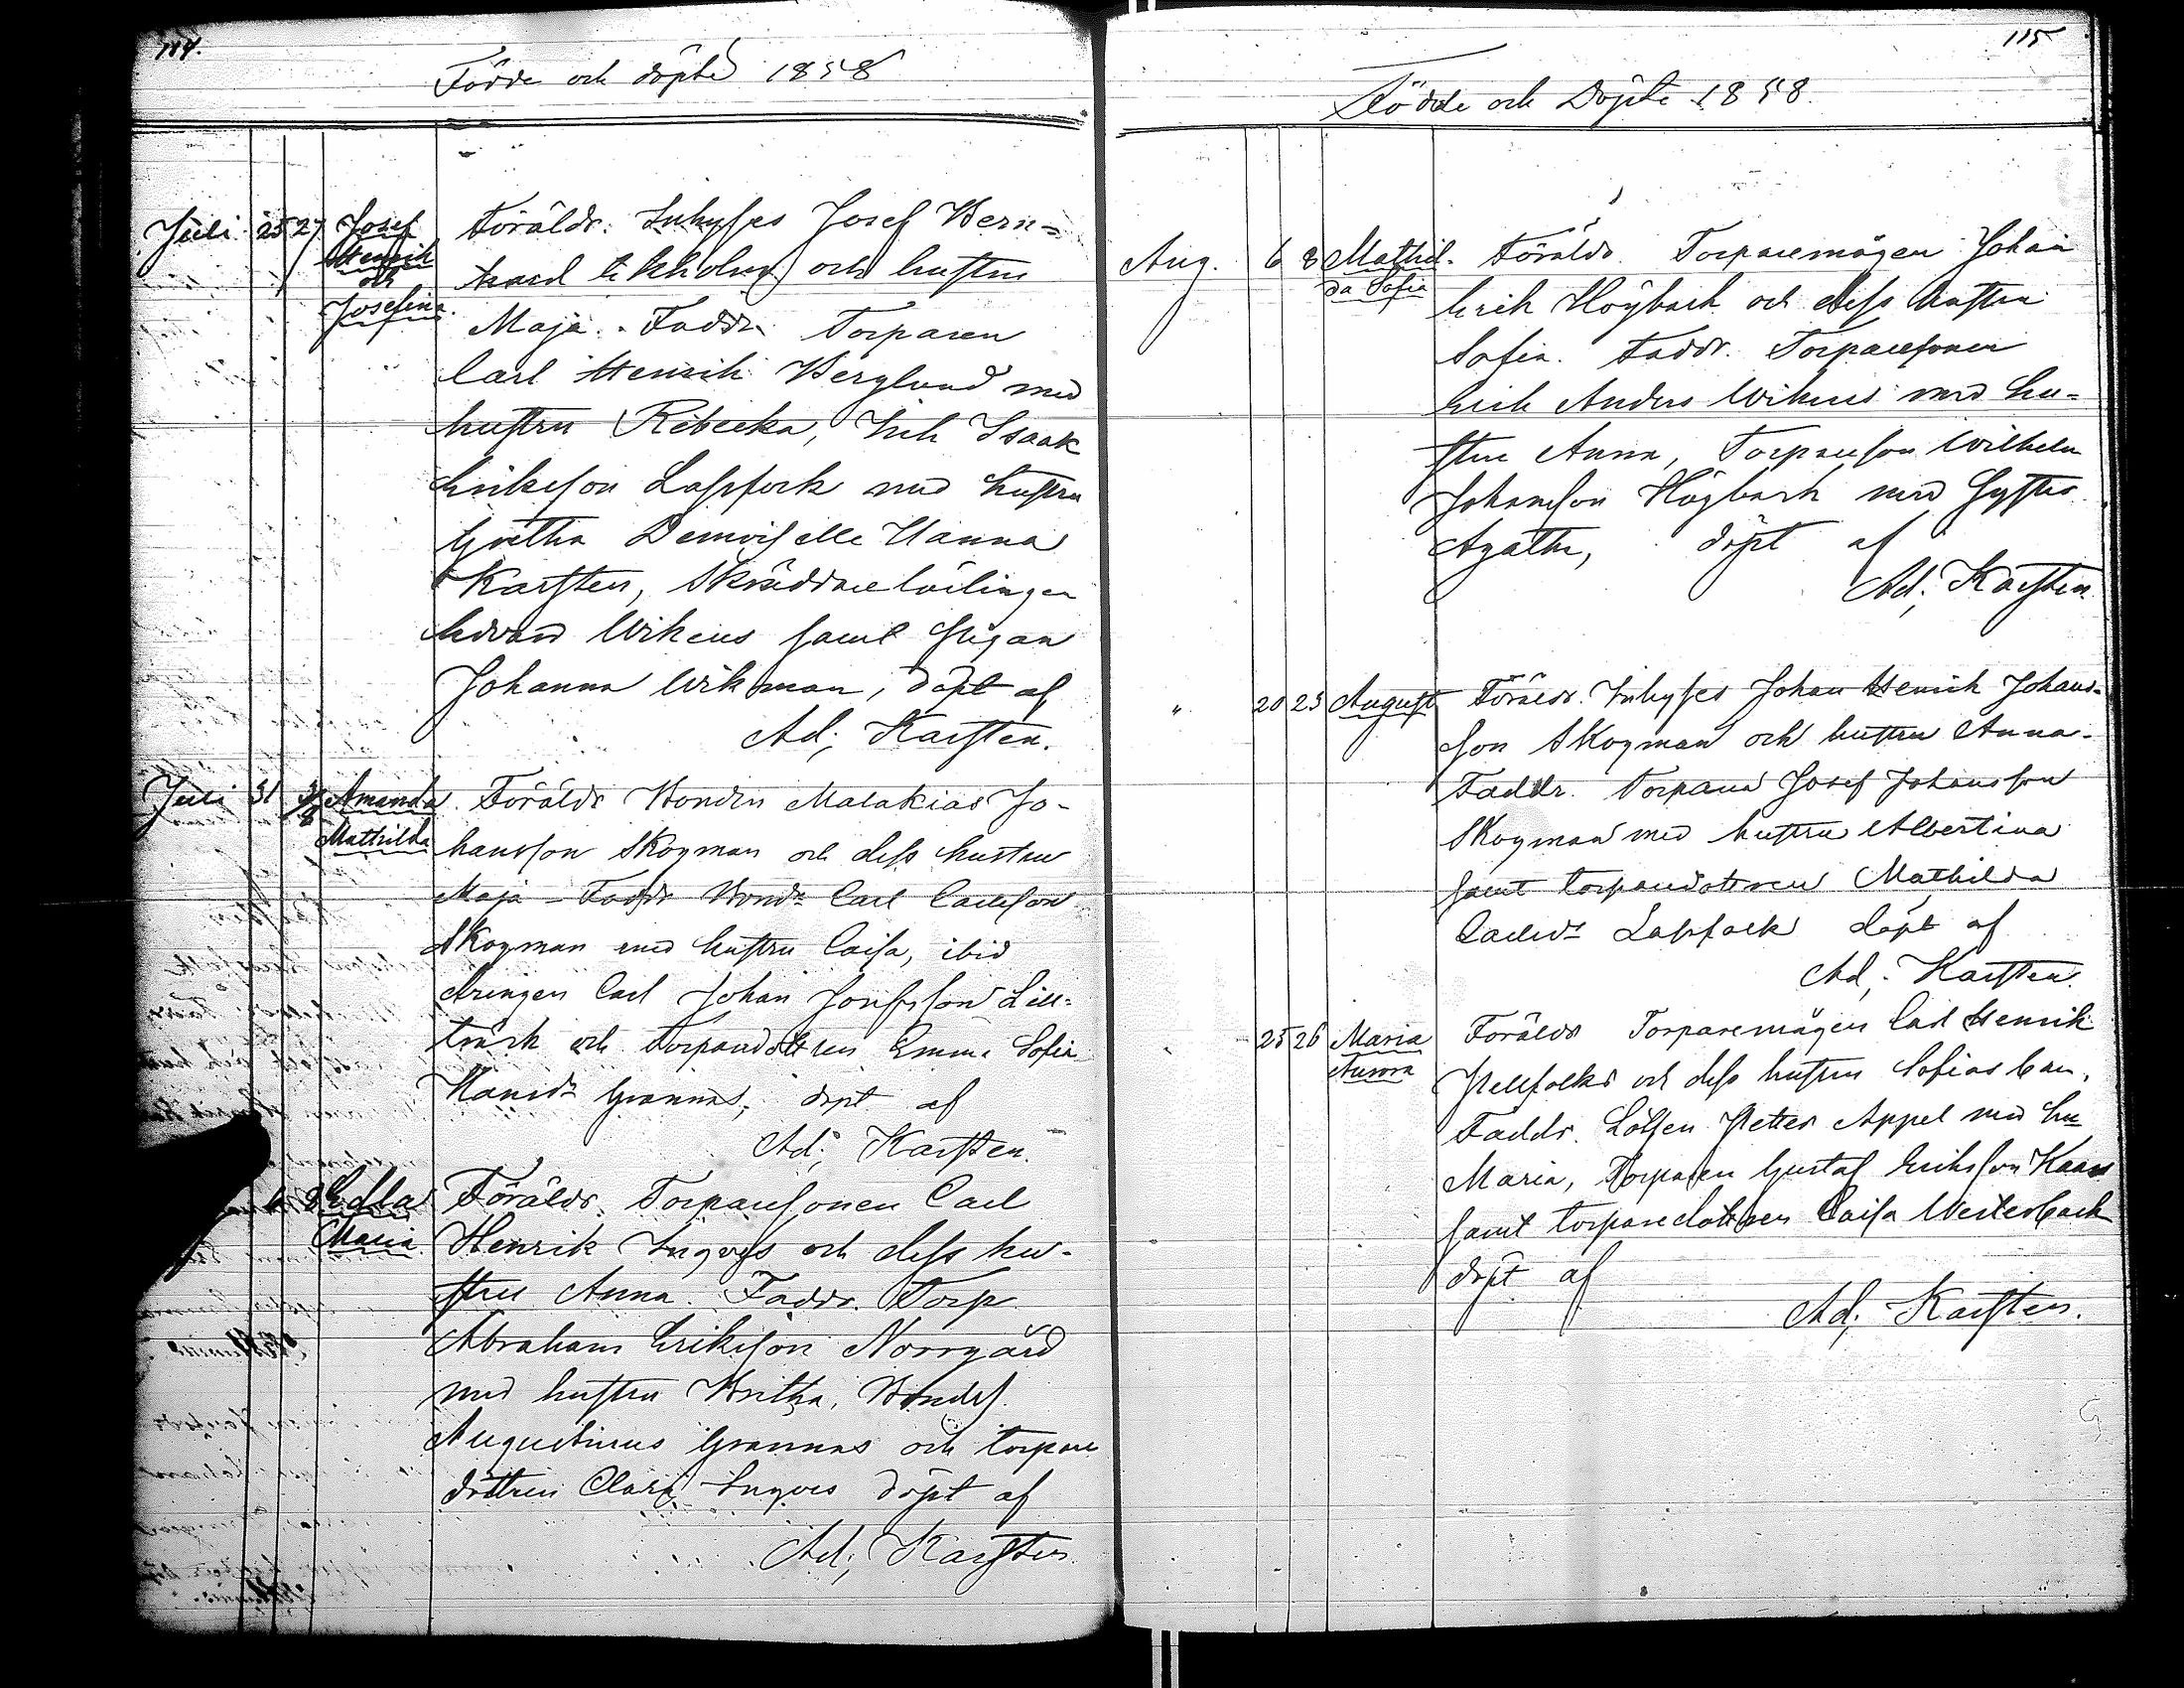 114.
Födde och döpte 1858
Juli 25 27 Josef Henrik och Josefina.
Föräldr. Inhyses Josef Bern-
hard Ekholm och hustru
Maja. Faddr. Torparen
Carl Henrik Berglund med
hustru Rebecka, Inh Isaak
Eriksson Lassfolk med hustru
Gretha Demoiselle Hanna
Karsten, Skräddarelärlingen
Edvard Wikeus samt Pigan
Johanna Wikman, döpt af
Ad; Karsten.
Juli 31 3/8 Amanda Mathilda
Föräldr Bonden Malakias Jo-
hansson Skogman och dess hustru
Maja - Faddr Bond. Carl Carlsson
Skogman med hustru Caisa, ibid
drengen Carl Johan Josefsson Lill-
träsk och Torparedottren Emma Sofia
Hansdr Grannas, döpt af
Ad; Karsten.
6 8 Edla Maria
Föräldr. Torparesonen Carl
Henrik Ingves och dess hu-
stru Anna. Faddr. Torp.
Abraham Eriksson Norrgård
med hustru Britha, Bondes.
Augustinus Grannas och torpare
dottren Clara Ingves döpt af
Ad; Karsten.
115
Födde och Döpte 1858.
Aug. 6 8 Mathil-da Sofia
Föräldr. Torparemågen Johan
Erik Högback och dess hustru
Sofia. Faddr. Torparesonen
Erik Anders Wikeus med hu-
stru Anna, Torpareson Wilhelm
Johansson Högback med Syster
Agatha, döpt af
Ad; Karsten.
" 20 23 August
Föräldr. Inhyses Johan Henrik Johans-
son Skogman och hustru Anna-
Faddr. Torparen Josef Johansson
Skogman med hustru Albertina
samt torparedottren Mathilda
Carlsdr Lassfolk döpt af
Ad; Karsten.
25 26 Maria Aurora
Föräldr Torparemågen Carl Henrik
och dess hustru Sofias barn.
Faddr. Lotsen Petter Appel med hu
Maria, Torparen Gustaf Eriksson Kaas
samt torparedottren Caisa Westerback
döpt af
Ad; Karsten.